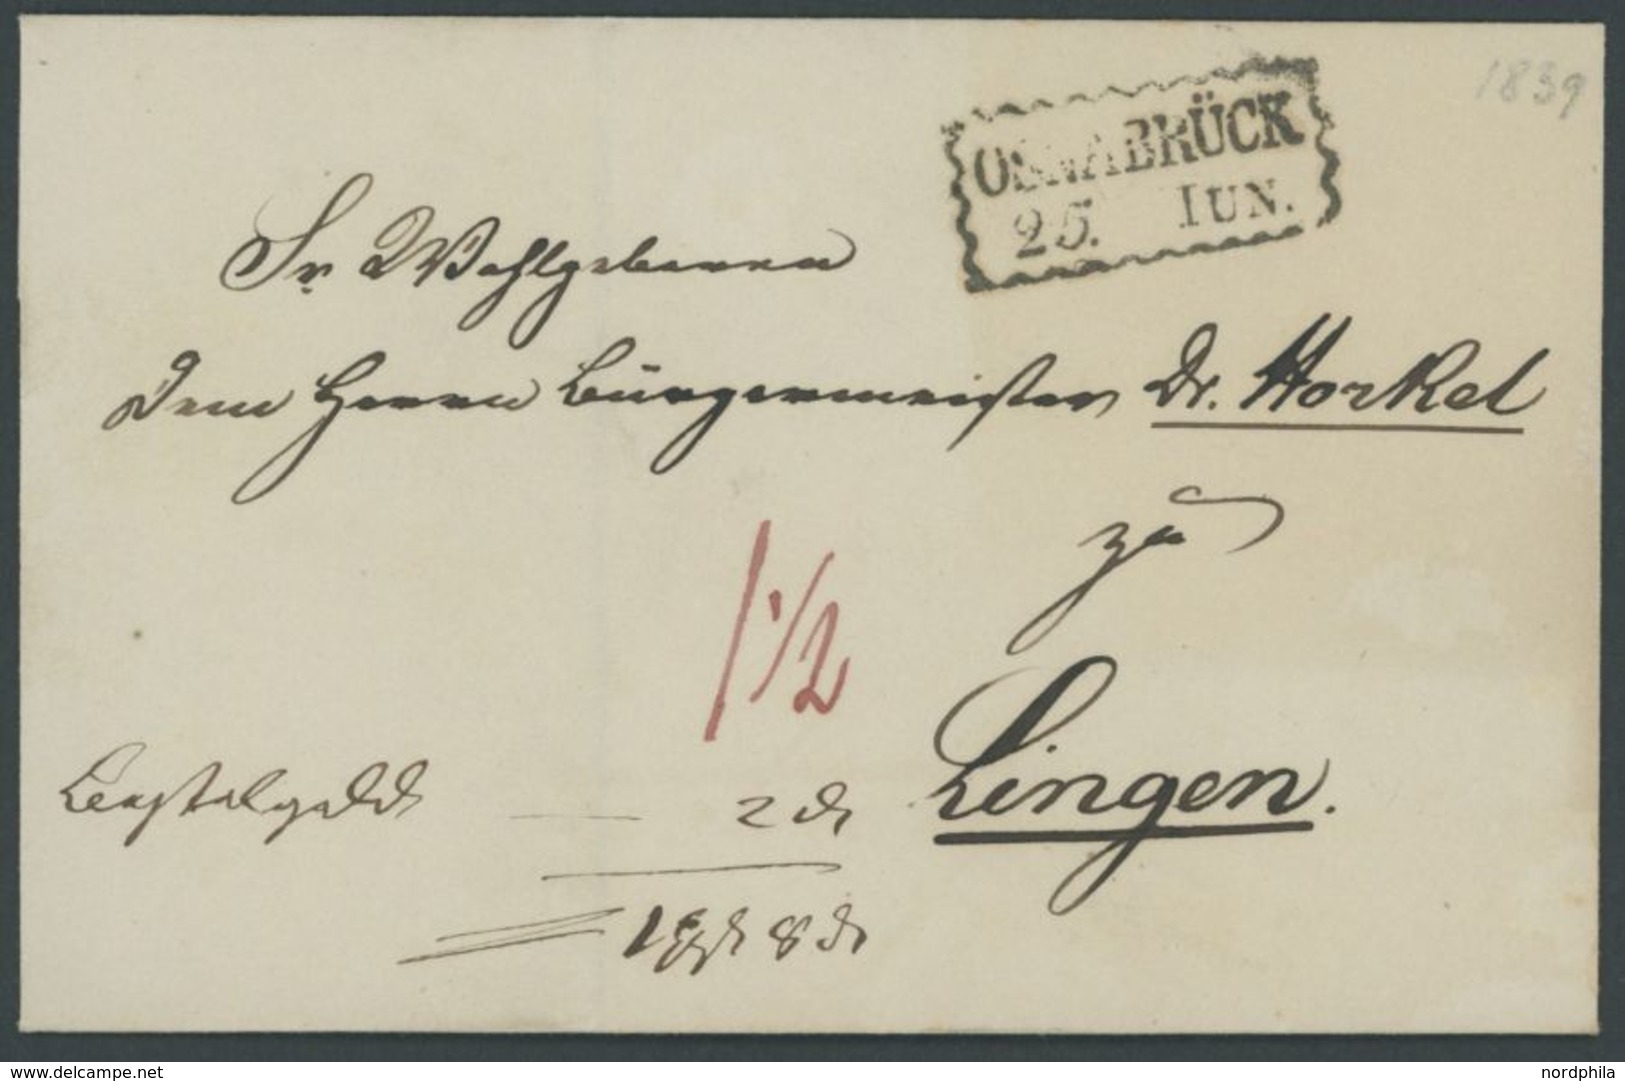 1839
OSNABRÜCK
25. IUN.
Sr Wohlgeboren
Dem Herrn Bürgermeister Dr. Horkel
zu
Lingen.
1 1/2
Bestelgeld — 2 d
1 ggr 8 d
www.delcampe.net
nordphila